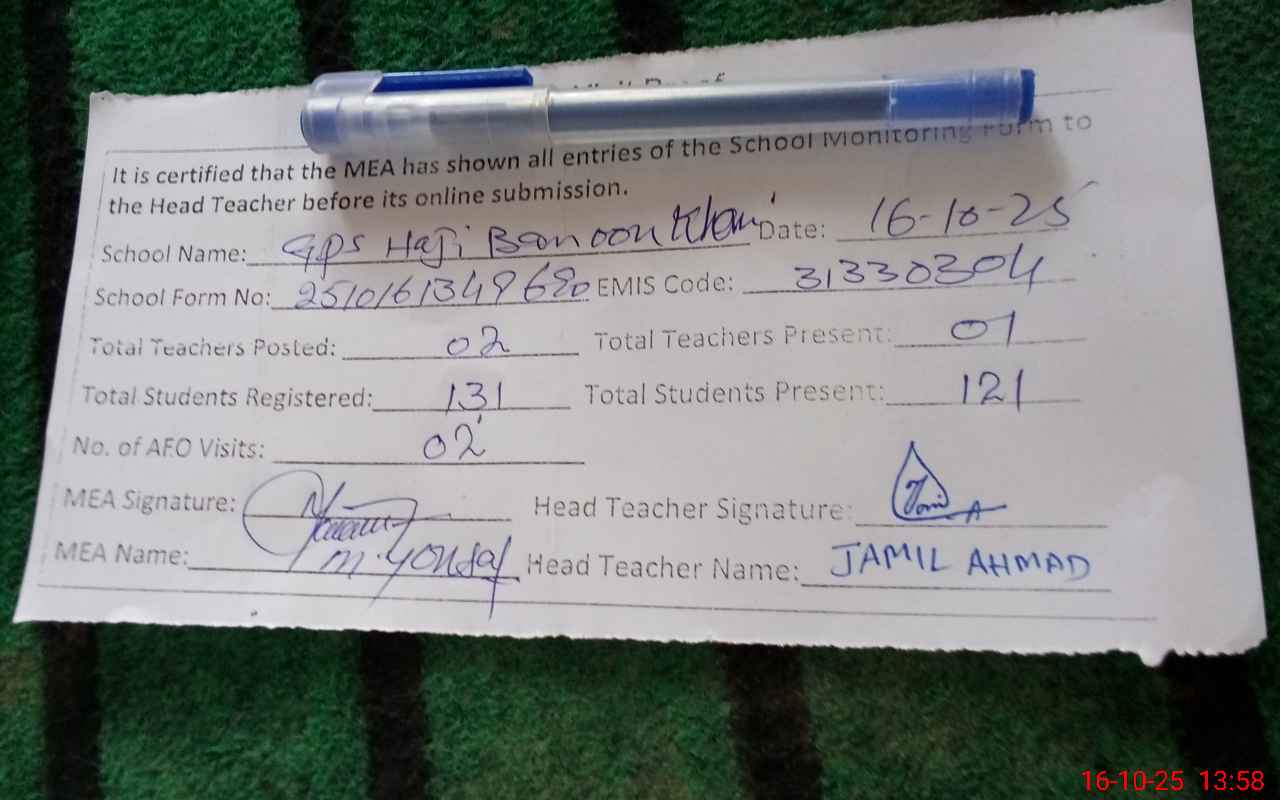 It is certified that the MEA has shown all entries of the School Monitoring Form to
the Head Teacher before its online submission.
School Name: GPS Haji Banoon Khan Date: 16-10-25
School Form No: 2510161349680 EMIS Code: 31330304
Total Teachers Posted: 02 Total Teachers Present: 01
Total Students Registered: 131 Total Students Present: 121
No. of AEO Visits: 02
MEA Signature: Head Teacher Signature:
MEA Name: M. Yousaf Head Teacher Name: JAMIL AHMAD
16-10-25 13:58